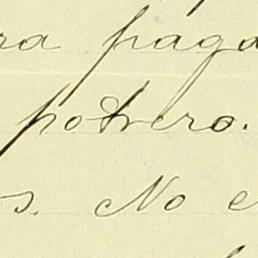 ra paga
potrero.
s. No e